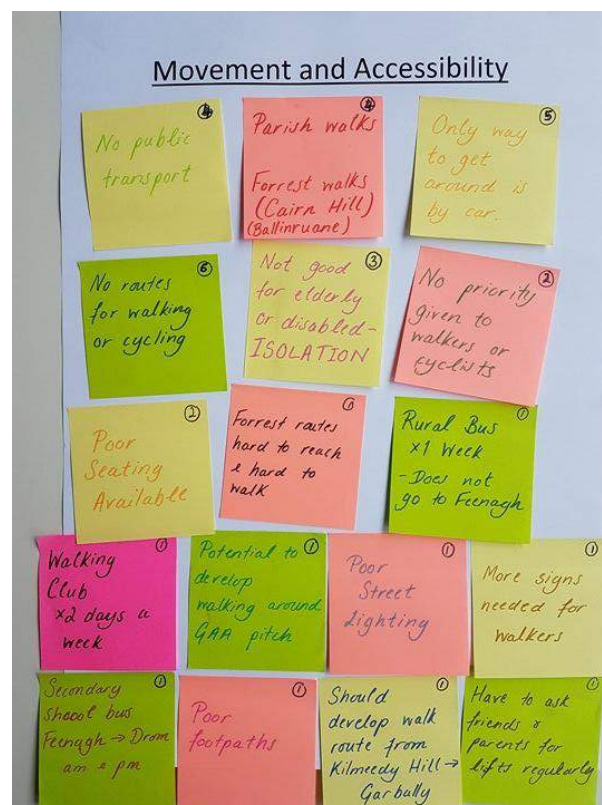 Movement and Accessibility
④
No public
transport
④
Parish walks
Forrest walks
(Cairn Hill)
(Ballinruane)
⑤
Only way
to get
around is
by car.
⑥
No routes
for walking
or cycling
③
Not good
for elderly
or disabled-
ISOLATION
②
No priority
given to
walkers or
cyclists
②
Poor
Seating
Available
①
Forrest routes
hard to reach
& hard to
walk
①
Rural Bus
x1 Week
- Does not
go to Feenagh
①
Walking
Club
x2 days a
week
①
Potential to
develop
walking around
GAA pitch
①
Poor
Street
Lighting
①
More signs
needed for
walkers
①
Secondary
school bus
Feenagh → Drom
am & pm
①
Poor
footpaths
①
Should
develop walk
route from
Kilmeedy Hill →
Garbally
①
Have to ask
friends &
parents for
lifts regularly